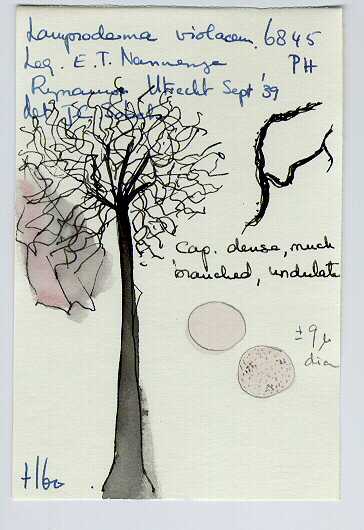 Lamproderma violaceum. 6845
Leg. E. T. Nannenga PH
Rijnauwen Utrecht Sept '39
det
Cap. dense, much
branched, undulate
± 9 μ
dia